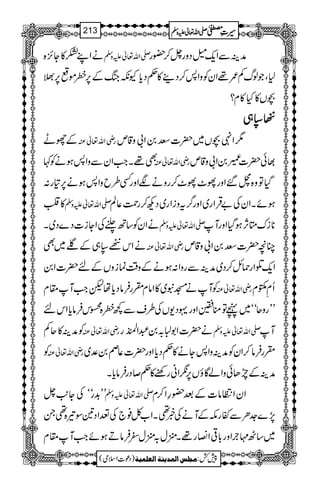 سیرتِ مصطفی صلی اللہ تعالیٰ علیہ وسلم 213
مدینہ سے ایک میل دور چل کر حضور صلی اللہ تعالیٰ علیہ وسلم نے اپنے لشکر کا جائزہ
لیا، جو لوگ کم عمر تھے ان کو واپس کر دینے کا حکم دیا کیونکہ جنگ کے پُرخطر موقع پر بھلا
بچوں کا کیا کام؟
ننھا سپاہی
مگر انہی بچوں میں حضرت سعد بن ابی وقاص رضی اللہ تعالیٰ عنہ کے چھوٹے
بھائی حضرت عمیر بن ابی وقاص رضی اللہ تعالیٰ عنہ بھی تھے۔ جب ان سے واپس ہونے کو کہا
گیا تو وہ مچل گئے اور پھوٹ پھوٹ کر رونے لگے اور کسی طرح واپس ہونے پر تیار نہ
ہوئے۔ ان کی بے قراری اور گریہ وزاری دیکھ کر رحمت عالم صلی اللہ تعالیٰ علیہ وسلم کا قلب
نازک متاثر ہو گیا اور آپ صلی اللہ تعالیٰ علیہ وسلم نے ان کو ساتھ چلنے کی اجازت دے دی۔
چنانچہ حضرت سعد بن ابی وقاص رضی اللہ تعالیٰ عنہ نے اس ننھے سپاہی کے گلے میں بھی
ایک تلوار حمائل کر دی مدینہ سے روانہ ہونے کے وقت نمازوں کے لئے حضرت ابن
اُمِ مکتوم رضی اللہ تعالیٰ عنہ کو آپ نے مسجد نبوی کا امام مقرر فرما دیا تھا لیکن جب آپ مقام
’’روحا‘‘ میں پہنچے تو منافقین اور یہودیوں کی طرف سے کچھ خطرہ محسوس فرمایا اس لئے
آپ صلی اللہ تعالیٰ علیہ وسلم نے حضرت ابولبابہ بن عبدالمنذر رضی اللہ تعالیٰ عنہ کو مدینہ کا حاکم
مقرر فرما کر ان کو مدینہ واپس جانے کا حکم دیا اور حضرت عاصم بن عدی رضی اللہ تعالیٰ عنہ کو
مدینہ کے چڑھائی والے گاؤں پر نگرانی رکھنے کا حکم صادر فرمایا۔
ان انتظامات کے بعد حضور اکرم صلی اللہ تعالیٰ علیہ وسلم ’’بدر‘‘ کی جانب چل
پڑے جدھر سے کفار مکہ کے آنے کی خبر تھی۔ اب کل فوج کی تعداد تین سو تیرہ تھی جن
میں ساٹھ مہاجر اور باقی انصار تھے۔ منزل بہ منزل سفر فرماتے ہوئے جب آپ مقام
پیش کش: مجلس المدینۃ العلمیۃ (دعوتِ اسلامی)